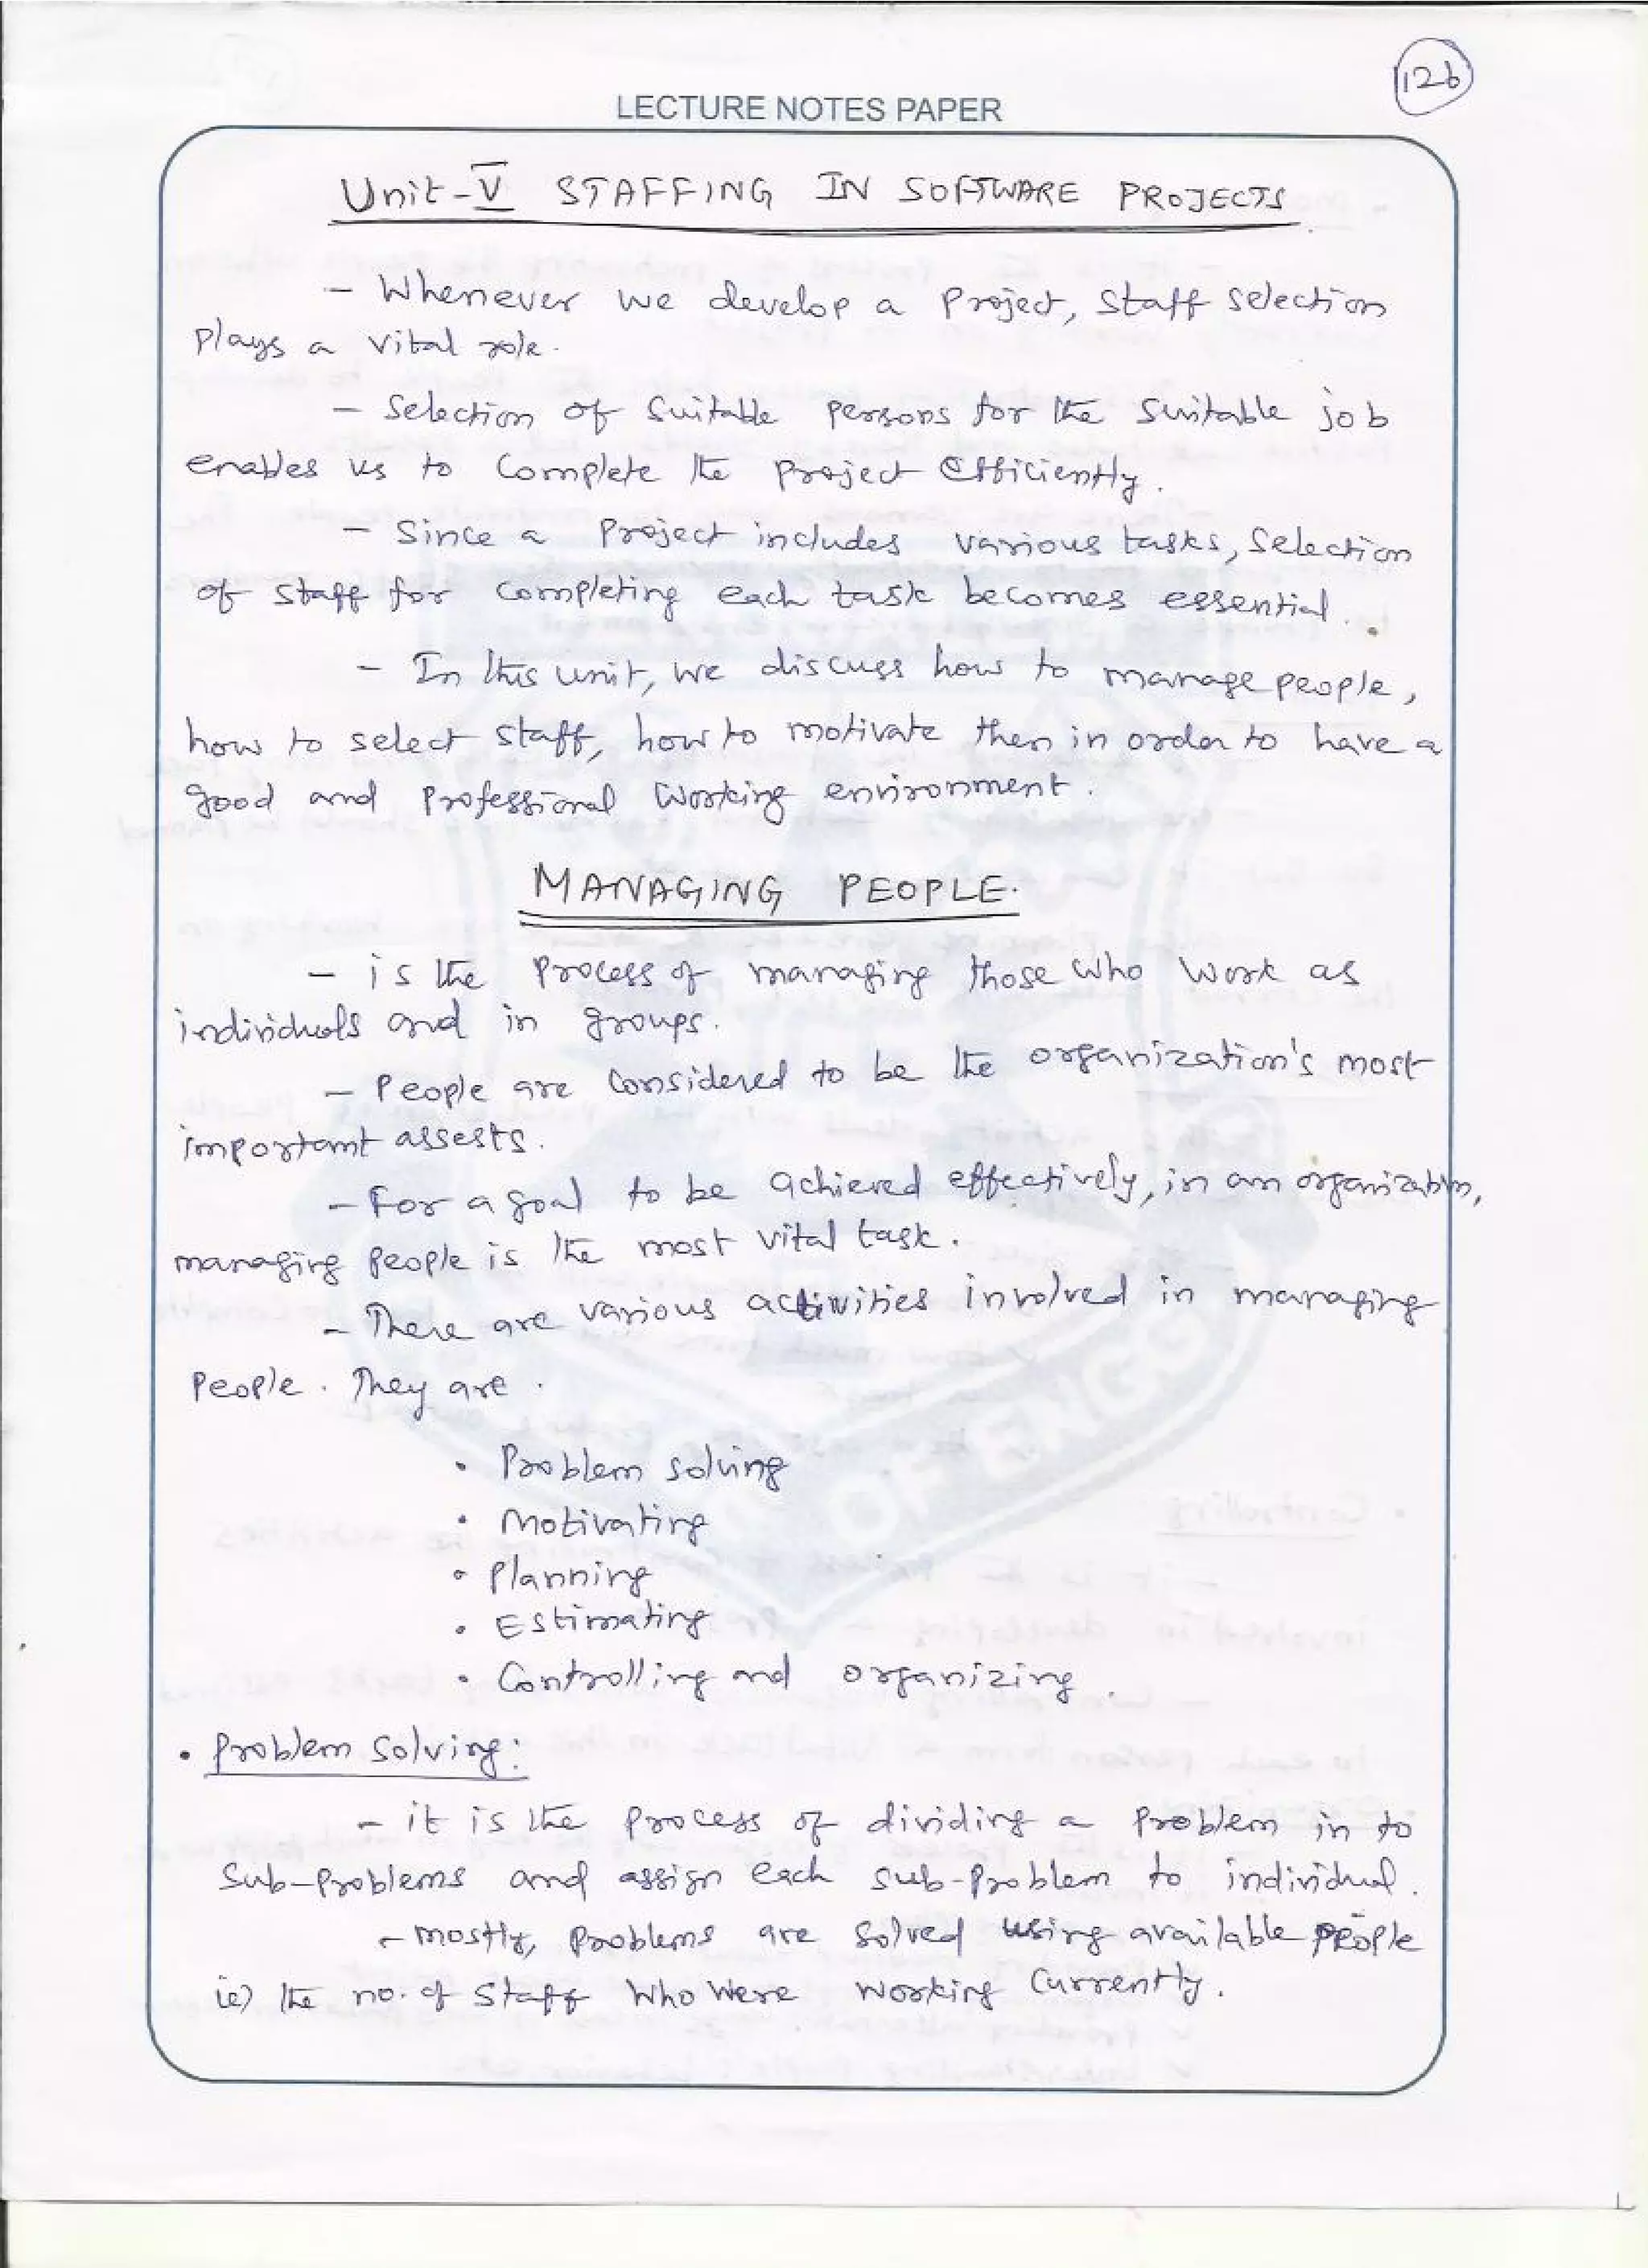 126
LECTURE NOTES PAPER
Unit-V STAFFING IN SOFTWARE PROJECTS
- Whenever we develop a Project, staff selection
plays a vital role.
- Selection of suitable persons for the suitable job
enables us to complete the project efficiently.
- Since a project includes various tasks, selection
of staff for completing each task becomes essential.
- In this unit, we discuss how to manage people,
how to select staff, how to motivate then in order to have a
good and professional working environment.
MANAGING PEOPLE.
- is the process of managing those who work as
individuals and in groups.
- People are considered to be the organization's most
important assests.
- For a goal to be achieved effectively, in an organization,
managing people is the most vital task.
- There are various activities involved in managing
people. They are.
• Problem solving
• Motivating
• Planning
• Estimating
• Controlling and organizing.
• Problem Solving:
- it is the process of dividing a problem in to
sub-problems and assign each sub-problem to individual.
- mostly, problems are solved using available people
ie) the no. of staff who were working currently.